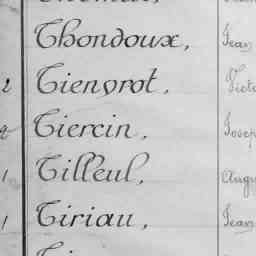 Thondoux, Jean
2 Tienvrot, Victo
2 Tiercin, Josep
1 Tilleul, Augu
1 Tiriau, Jean